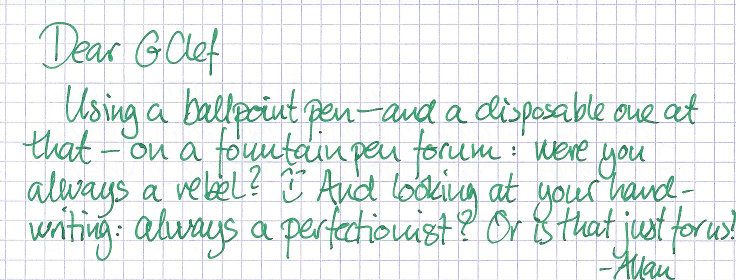 Dear G Clef
Using a ballpoint pen—and a disposable one at
that—on a fountain pen forum: were you
always a rebel? :) And looking at your hand-
writing: always a perfectionist? Or is that just for us?
-Allan